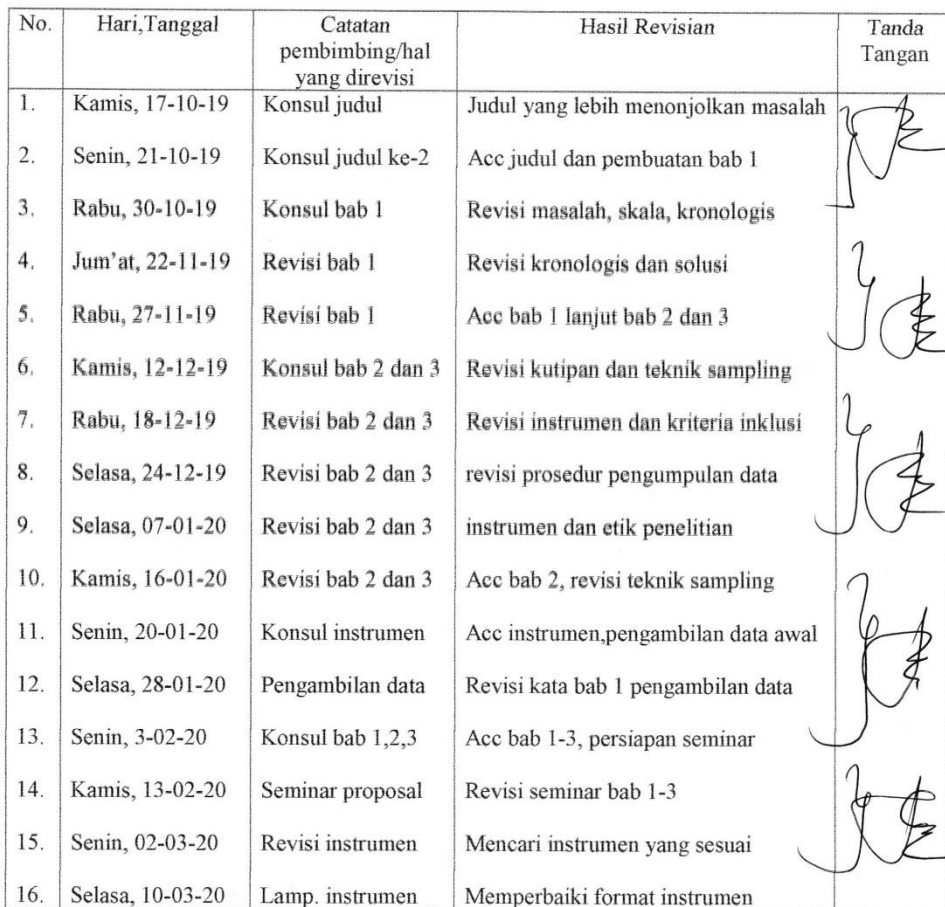 No. Hari,Tanggal Catatan pembimbing/hal yang direvisi Hasil Revisian Tanda Tangan
1. Kamis, 17-10-19 Konsul judul Judul yang lebih menonjolkan masalah
2. Senin, 21-10-19 Konsul judul ke-2 Acc judul dan pembuatan bab 1
3. Rabu, 30-10-19 Konsul bab 1 Revisi masalah, skala, kronologis
4. Jum'at, 22-11-19 Revisi bab 1 Revisi kronologis dan solusi
5. Rabu, 27-11-19 Revisi bab 1 Acc bab 1 lanjut bab 2 dan 3
6. Kamis, 12-12-19 Konsul bab 2 dan 3 Revisi kutipan dan teknik sampling
7. Rabu, 18-12-19 Revisi bab 2 dan 3 Revisi instrumen dan kriteria inklusi
8. Selasa, 24-12-19 Revisi bab 2 dan 3 revisi prosedur pengumpulan data
9. Selasa, 07-01-20 Revisi bab 2 dan 3 instrumen dan etik penelitian
10. Kamis, 16-01-20 Revisi bab 2 dan 3 Acc bab 2, revisi teknik sampling
11. Senin, 20-01-20 Konsul instrumen Acc instrumen,pengambilan data awal
12. Selasa, 28-01-20 Pengambilan data Revisi kata bab 1 pengambilan data
13. Senin, 3-02-20 Konsul bab 1,2,3 Acc bab 1-3, persiapan seminar
14. Kamis, 13-02-20 Seminar proposal Revisi seminar bab 1-3
15. Senin, 02-03-20 Revisi instrumen Mencari instrumen yang sesuai
16. Selasa, 10-03-20 Lamp. instrumen Memperbaiki format instrumen